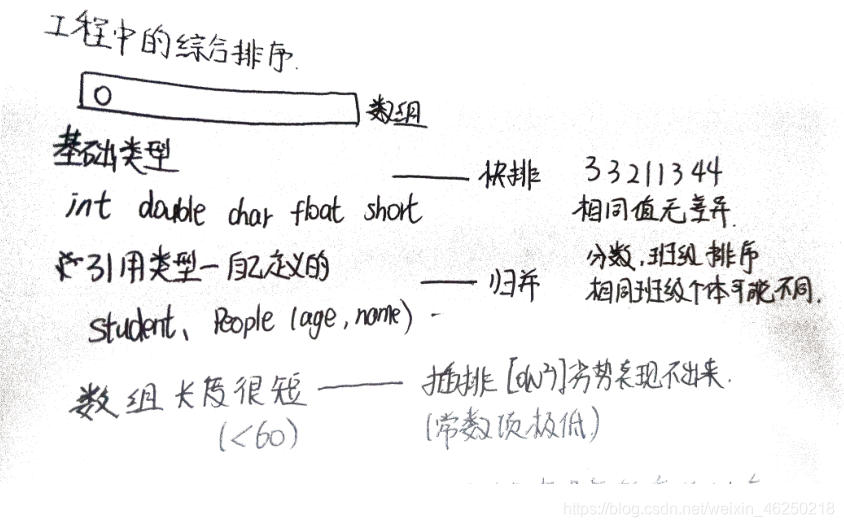 工程中的综合排序.
数组
基础类型
快排
33211344
int double char float short
相同值无差异.
引用类型-自己定义的
归并
分数.班级排序
相同班级个体可能不同.
student、People (age, name)
数组长度很短
插排[O(N²)]劣势表现不出来.
(<60)
(常数项极低)
https://blog.csdn.net/weixin_46250218